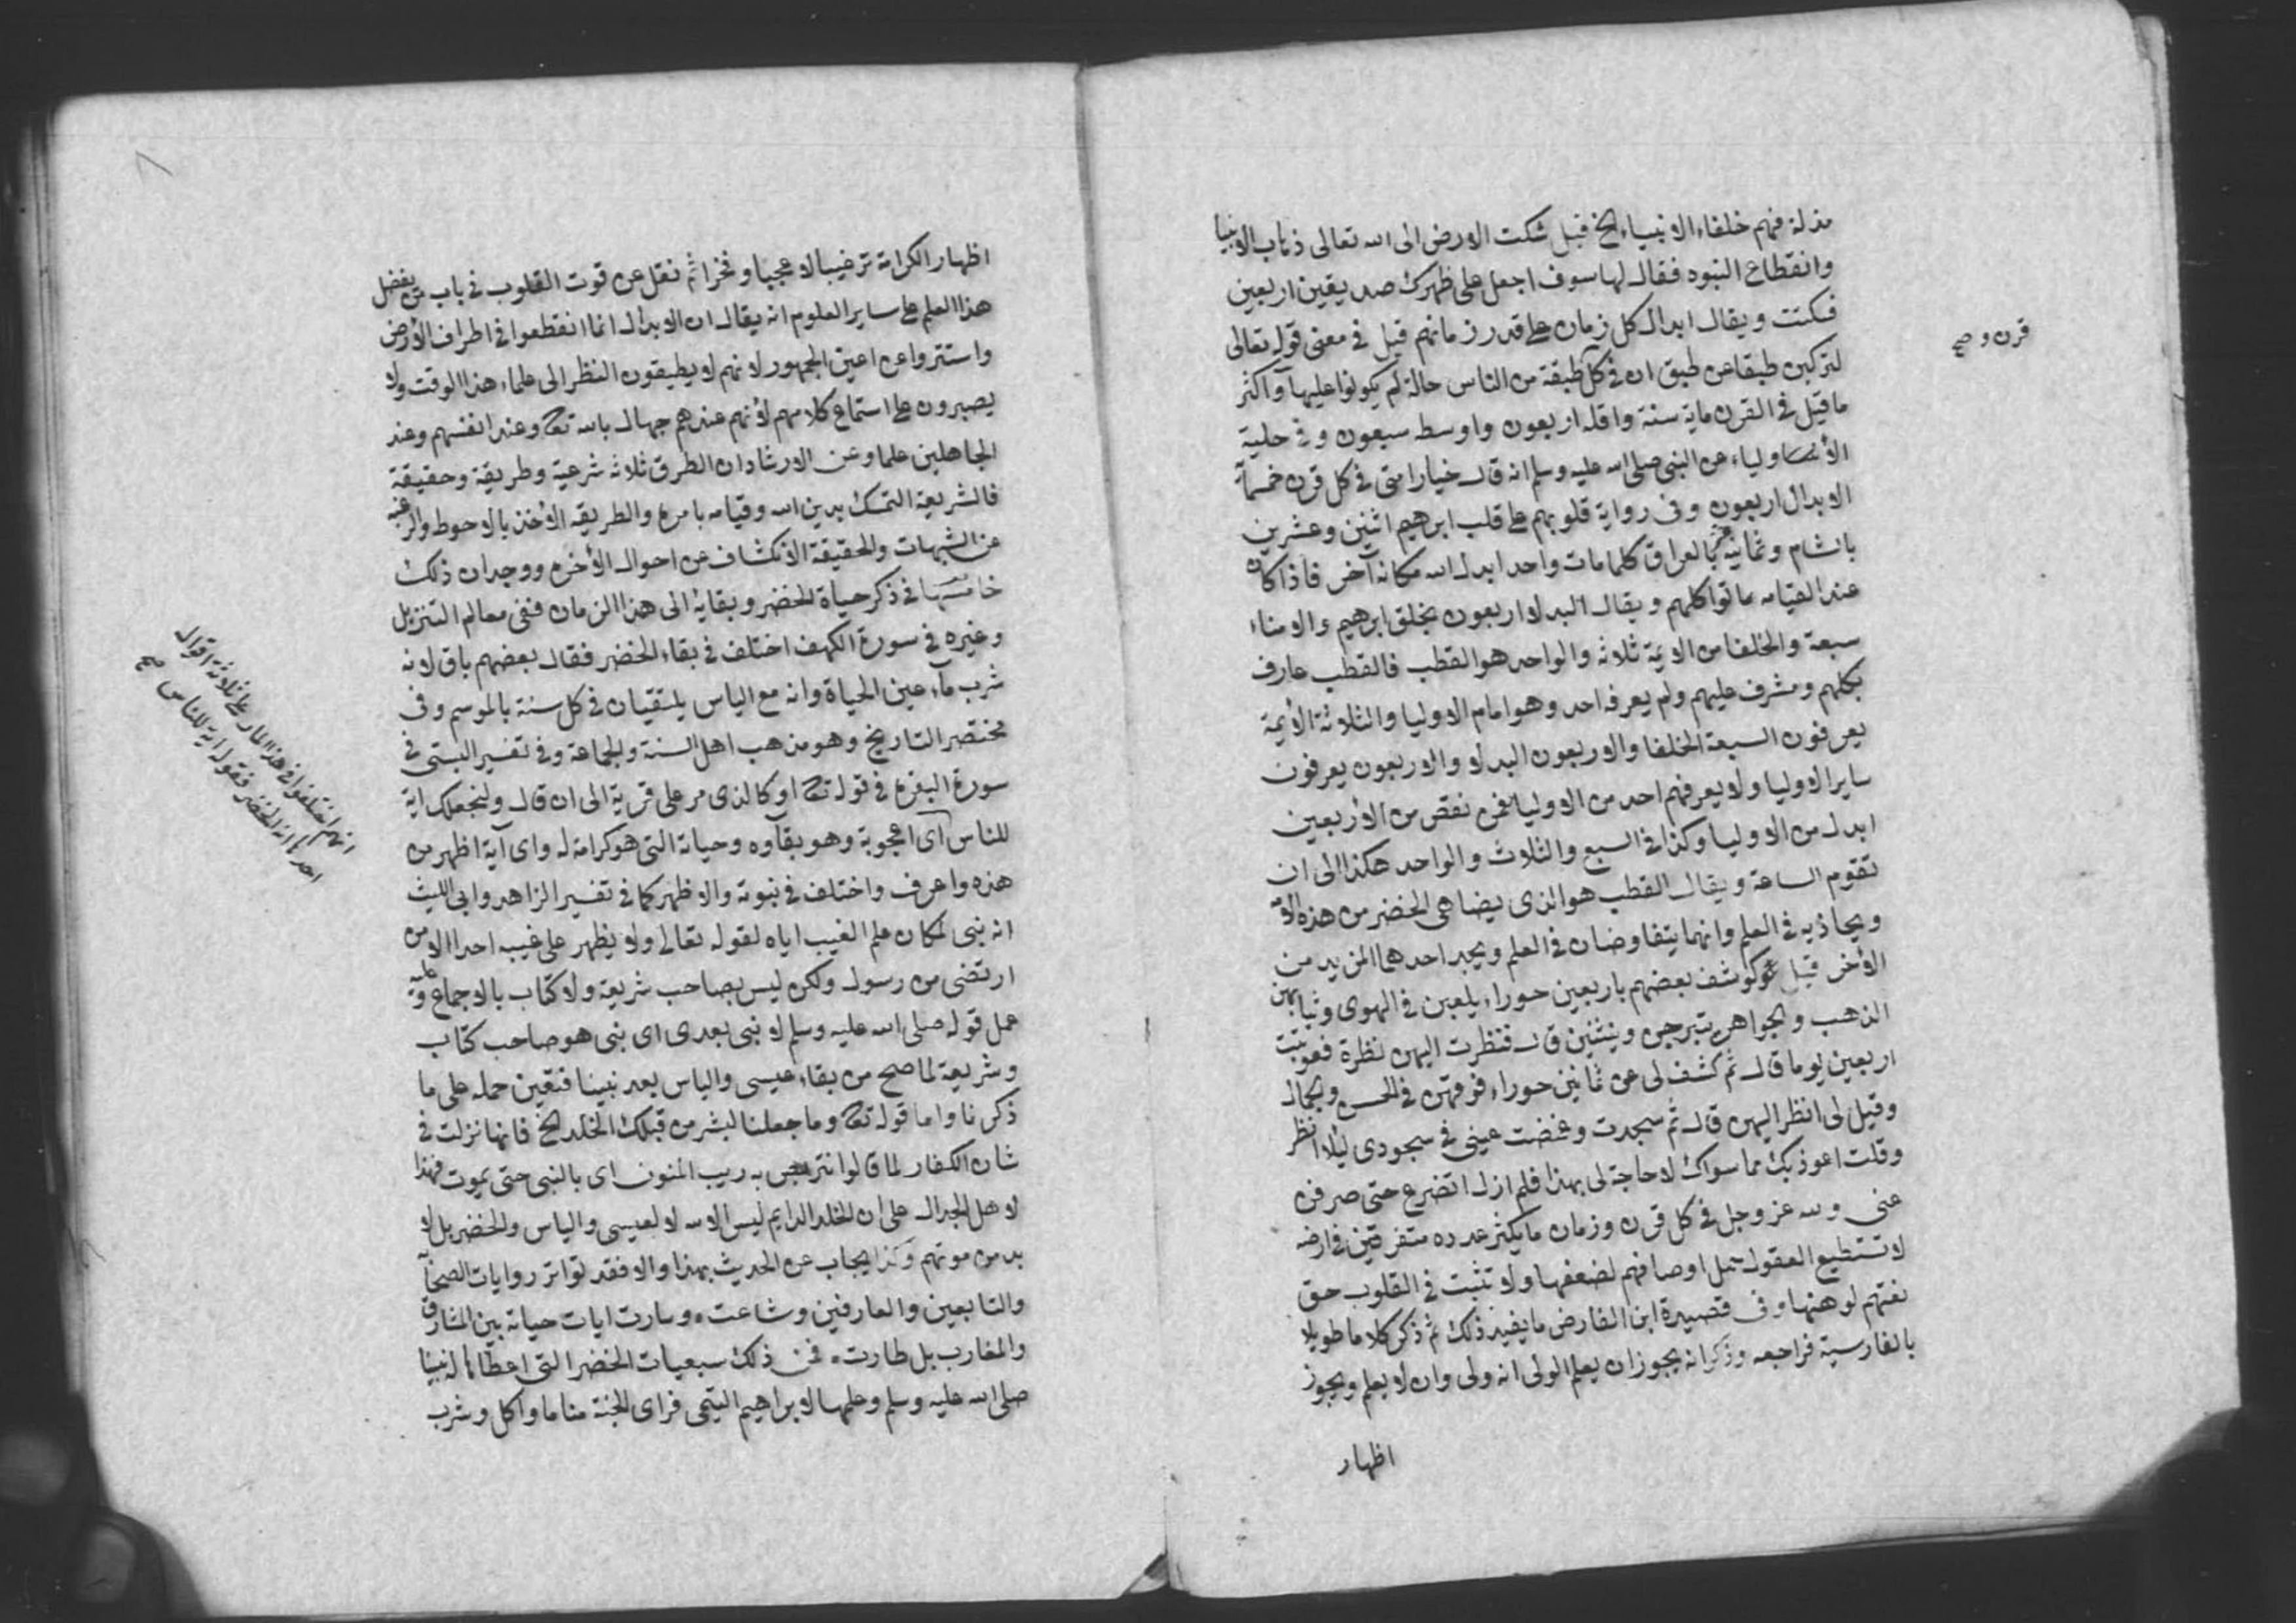 منزلة فهم خلفاء الانبياء الخ قيل شكت الارض الى الله تعالى ذهاب الانبيا
وانقطاع النبوه فقال لها سوف اجعل على ظهرك صديقين اربعين
فسكنت ويقال ابدال كل زمان على قدر زمانهم قيل في معنى قوله تعالى
لتركبن طبقا عن طبق ان في كل طبقة من الناس حالة لم يكونوا عليها واكثر
ما قيل في القرن ماية سنة واقله اربعون واوسط سبعون وفي حلية
الاولياء عن النبي صلى الله عليه وسلم انه قال خيار امتي في كل قرن خمسماة
الابدال اربعون وفي رواية قلوبهم على قلب ابرهيم اثنين وعشرين
بالشام وثمانية بالعراق كلما مات واحد ابدل الله مكانه آخر فاذا كان
عند القيامه ماتوا كلهم ويقال البدلا اربعون بخلق ابرهيم والامناء
سبعة والخلفا من الايمة ثلاثه والواحد هو القطب فالقطب عارف
بكلهم ومشرف عليهم ولم يعرفه احد وهو امام الاوليا والثلاثة الايمة
يعرفون السبعة الخلفا والاربعون البدلا والاربعون يعرفون
ساير الاوليا ولا يعرفهم احد من الاوليا فمن نقص من الاربعين
ابدل من الاوليا وكذا في السبع والثلاث والواحد هكذا الى ان
تقوم الساعة ويقال القطب هو الذي يضاهى الخضر من هذه الامة
ويحاذيه في العلم وانهما يتفاوضان في العلم ويجد احدهما المزيد من
الآخر قيل كوشف بعضهم باربعين حوراء يلعبن في الهوى وثيابهن
الذهب والجواهر يتبرجن ويتثنين قال فنظرت اليهن نظرة فعوتبت
اربعين يوما قال ثم كشف لي عن ثمانين حوراء فوقهن في الحسن والجمال
وقيل لي انظر اليهن قال ثم سجدت وغضضت عيني في سجودي ليلا انظر
وقلت اعوذ بك مما سواك لا حاجة لي بهذا فلم ازل اتضرع حتى صرفن
عني ولله عز وجل في كل قرن وزمان ما يكثر عدده متفرقين في ارضه
لا تستطيع العقول حمل اوصافهم لضعفها ولا تثبت في القلوب حق
نعتهم لوهنها وفي قصيدة ابن الفارض ما يفيد ذلك ثم ذكر كلاما طويلا
بالفارسية فراجعه وذكر انه يجوز ان يعلم الولي انه ولي وان لا يعلم ويجوز
اظهار
قرن و صح
اظهار الكرامة ترغيبا لا عجبا وفخرا ثم نقل عن قوت القلوب في باب من يفضل
هذا العلم على ساير العلوم انه يقال ان الابدال انما انقطعوا في اطراف الارض
واستتروا عن اعين الجمهور لانهم لا يطيقون النظر الى علماء هذا الوقت ولا
يصبرون على استماع كلامهم لانهم عندهم جهال بالله تع وعند انفسهم وعند
الجاهلين علما وعن الارشاد ان الطرق ثلاثه شرعية وطريقة وحقيقة
فالشريعة التمسك بدين الله وقيامه بامره والطريقه الاخذ بالاحوط والرغبة
عن الشبهات والحقيقة الانكشاف عن احوال الآخره ووجدان ذلك
خامسها في ذكر حياة الخضر وبقايه الى هذا الزمان ففي معالم التنزيل
وغيره في سورة الكهف اختلف في بقاء الخضر فقال بعضهم باق لانه
شرب ماء عين الحياة وانه مع الياس يلتقيان في كل سنة بالموسم وفي
مختصر التاريخ وهو مذهب اهل السنة والجماعة وفي تفسير البستي في
سورة البقرة في قوله تع او كالذي مر على قرية الى ان قال ولنجعلك اية
للناس اى اعجوبة وهو بقآوه وحياته التي هو كرامة له واى آية اظهر من
هذه واعرف واختلف في نبوته والاظهر كما في تفسير الزاهد وابي الليث
انه نبي لمكان علم الغيب اياه لقوله تعالى ولا يظهر على غيبه احدا الا من
ارتضى من رسول ولكن ليس بصاحب شريعة ولا كتاب بالاجماع وعليه
حمل قوله صلى الله عليه وسلم لا نبي بعدي اى نبي هو صاحب كتاب
وشريعة لما صح من بقاء عيسى والياس بعد نبينا فتعين حمله على ما
ذكرنا واما قوله تع وما جعلنا لبشر من قبلك الخلد الخ فانها نزلت في
شان الكفار لما قالوا نتربص به ريب المنون اى بالنبي حتى يموت فهذا
لاهل الجدال على ان الخلد الدايم ليس الا لله لا لعيسى والياس والخضر بل لا
بد من موتهم وكذا يجاب عن الحديث بهذا والا فقد تواتر روايات الصحابة
والتابعين والعارفين وشاعت وسارت ايات حياته بين المشارق
والمغارب بل طارت فمن ذلك سبعيات الخضر التي اعطاها له نبينا
صلى الله عليه وسلم وعلمها لابراهيم التيمي فراى الجنة مناما واكل وشرب
انهم اختلفوا في هذا المار على ثلاثة اقوال
احدها انه الخضر فقوله اية للناس صح